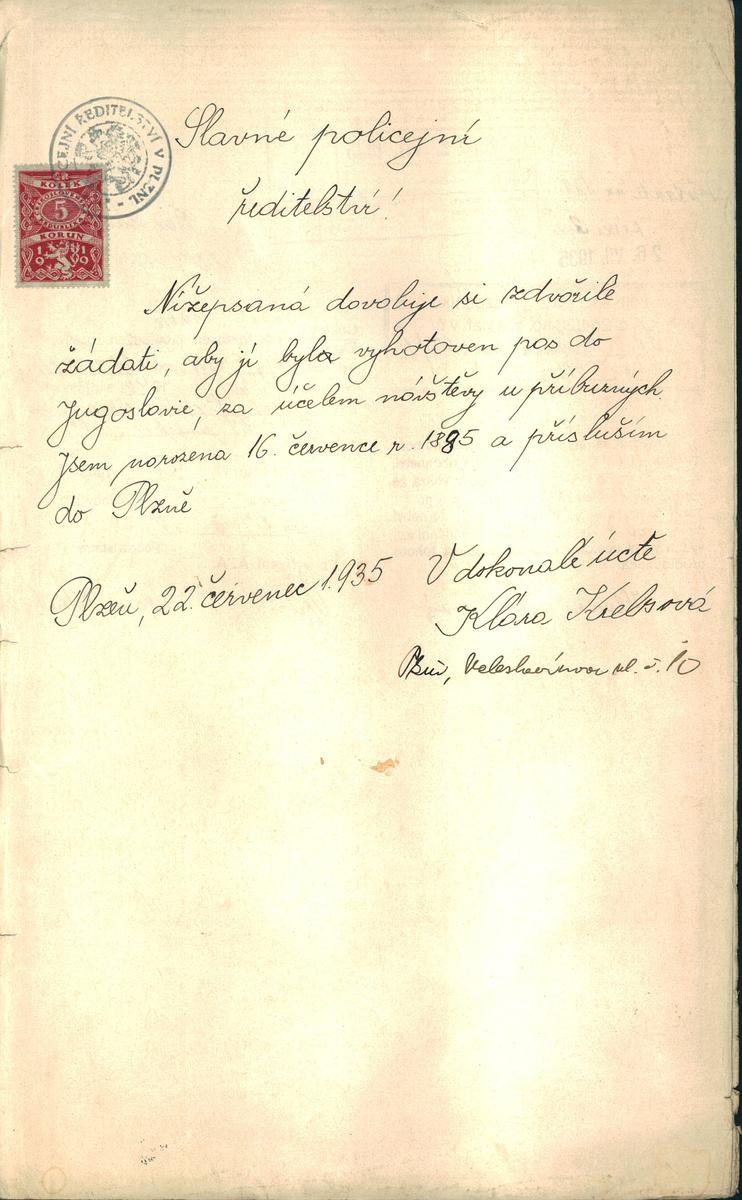 POLICEJNÍ ŘEDITELSTVÍ V PLZNI
KOLEK
5
KORUN
1919
Slavné policejní
ředitelství!
Nížepsaná dovoluje si zdvořile
žádati, aby jí byla vyhotoven pas do
Jugoslavie, za účelem návštěvy u příbuzných.
Jsem narozena 16. července r. 1885 a přísluším
do Plzně
Plzeň, 22. červenec 1.935
V dokonalé úctě
Klára Krebsová
Plzeň, Veleslavínova ul. č. 10